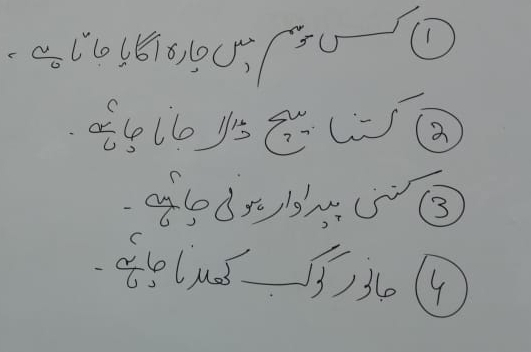 ① کس موسم میں چارہ اگایا جاتا ہے ۔
② کتنا بیج ڈالا جانا چاہئے ۔
③ کتنی پیداوار ہونی چاہئے ۔
④ جانور کو کب کھلانا چاہئے ۔